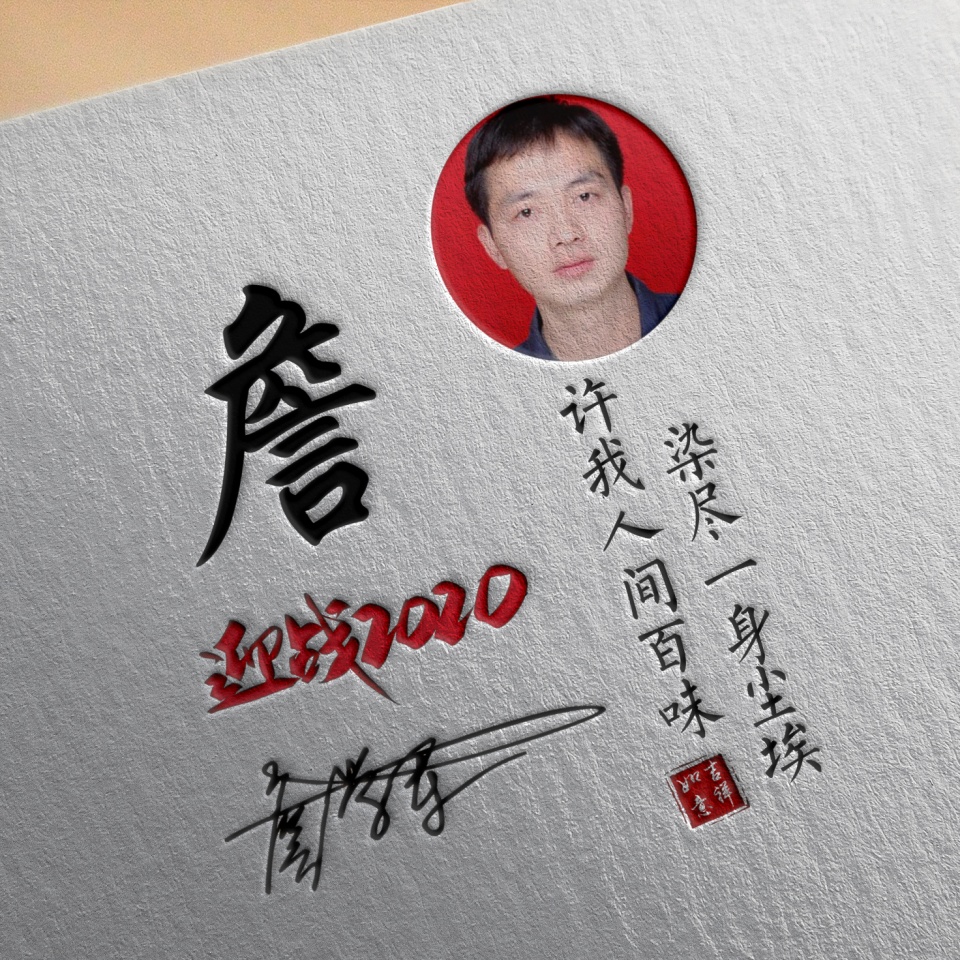 詹
迎战2020
詹学军
染尽一身尘埃
许我人间百味
吉祥
如意